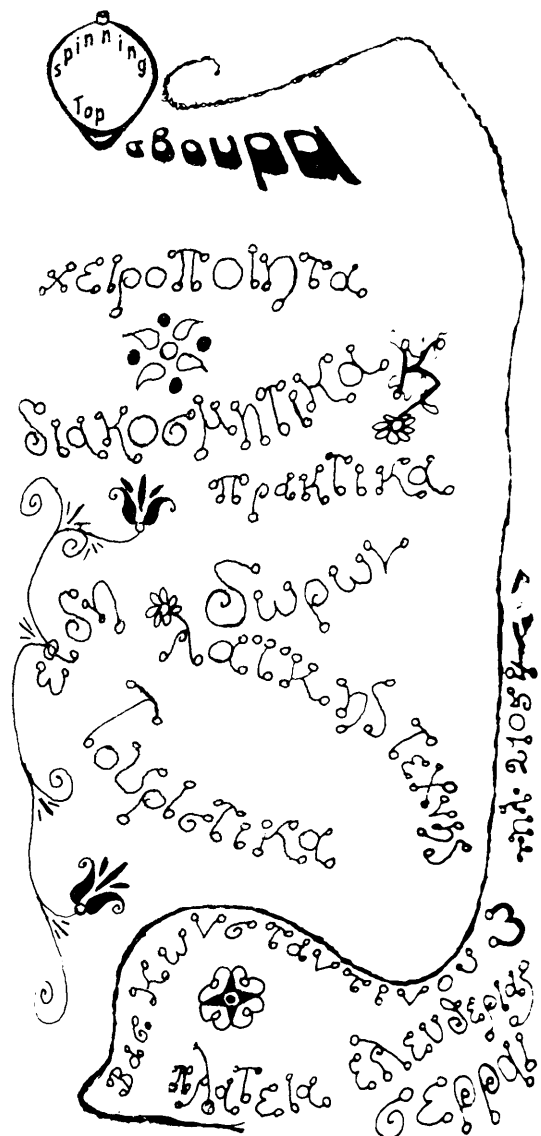 spinning
Top
σβουρα
χειροποιητα
διακοσμητικα κ
πρακτικα
δωρων
ειδη
λαϊκης τεχνης
Τουριστικα
Βας. Κωνσταντινου 3
πλατεια ελευθεριας
σερραι